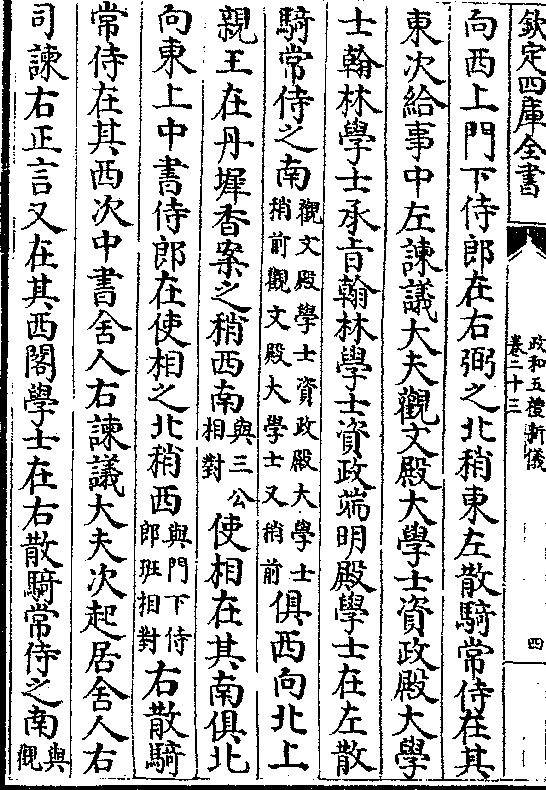 欽定四庫全書
政和五禮新儀
卷二十三
四
向西上門下侍郎在右弼之北稍東左散騎常侍在其
東次給事中左諫議大夫觀文殿大學士資政殿大學
士翰林學士承旨翰林學士資政端明殿學士在左散
騎常侍之南觀文殿學士資政殿大學士
稍前觀文殿大學士又稍前俱西向北上
親王在丹墀香案之稍西南與三公
相對使相在其南俱北
向東上中書侍郎在使相之北稍西與門下侍
郎班相對右散騎
常侍在其西次中書舍人右諫議大夫次起居舍人右
司諫右正言又在其西閣學士在右散騎常侍之南與
觀